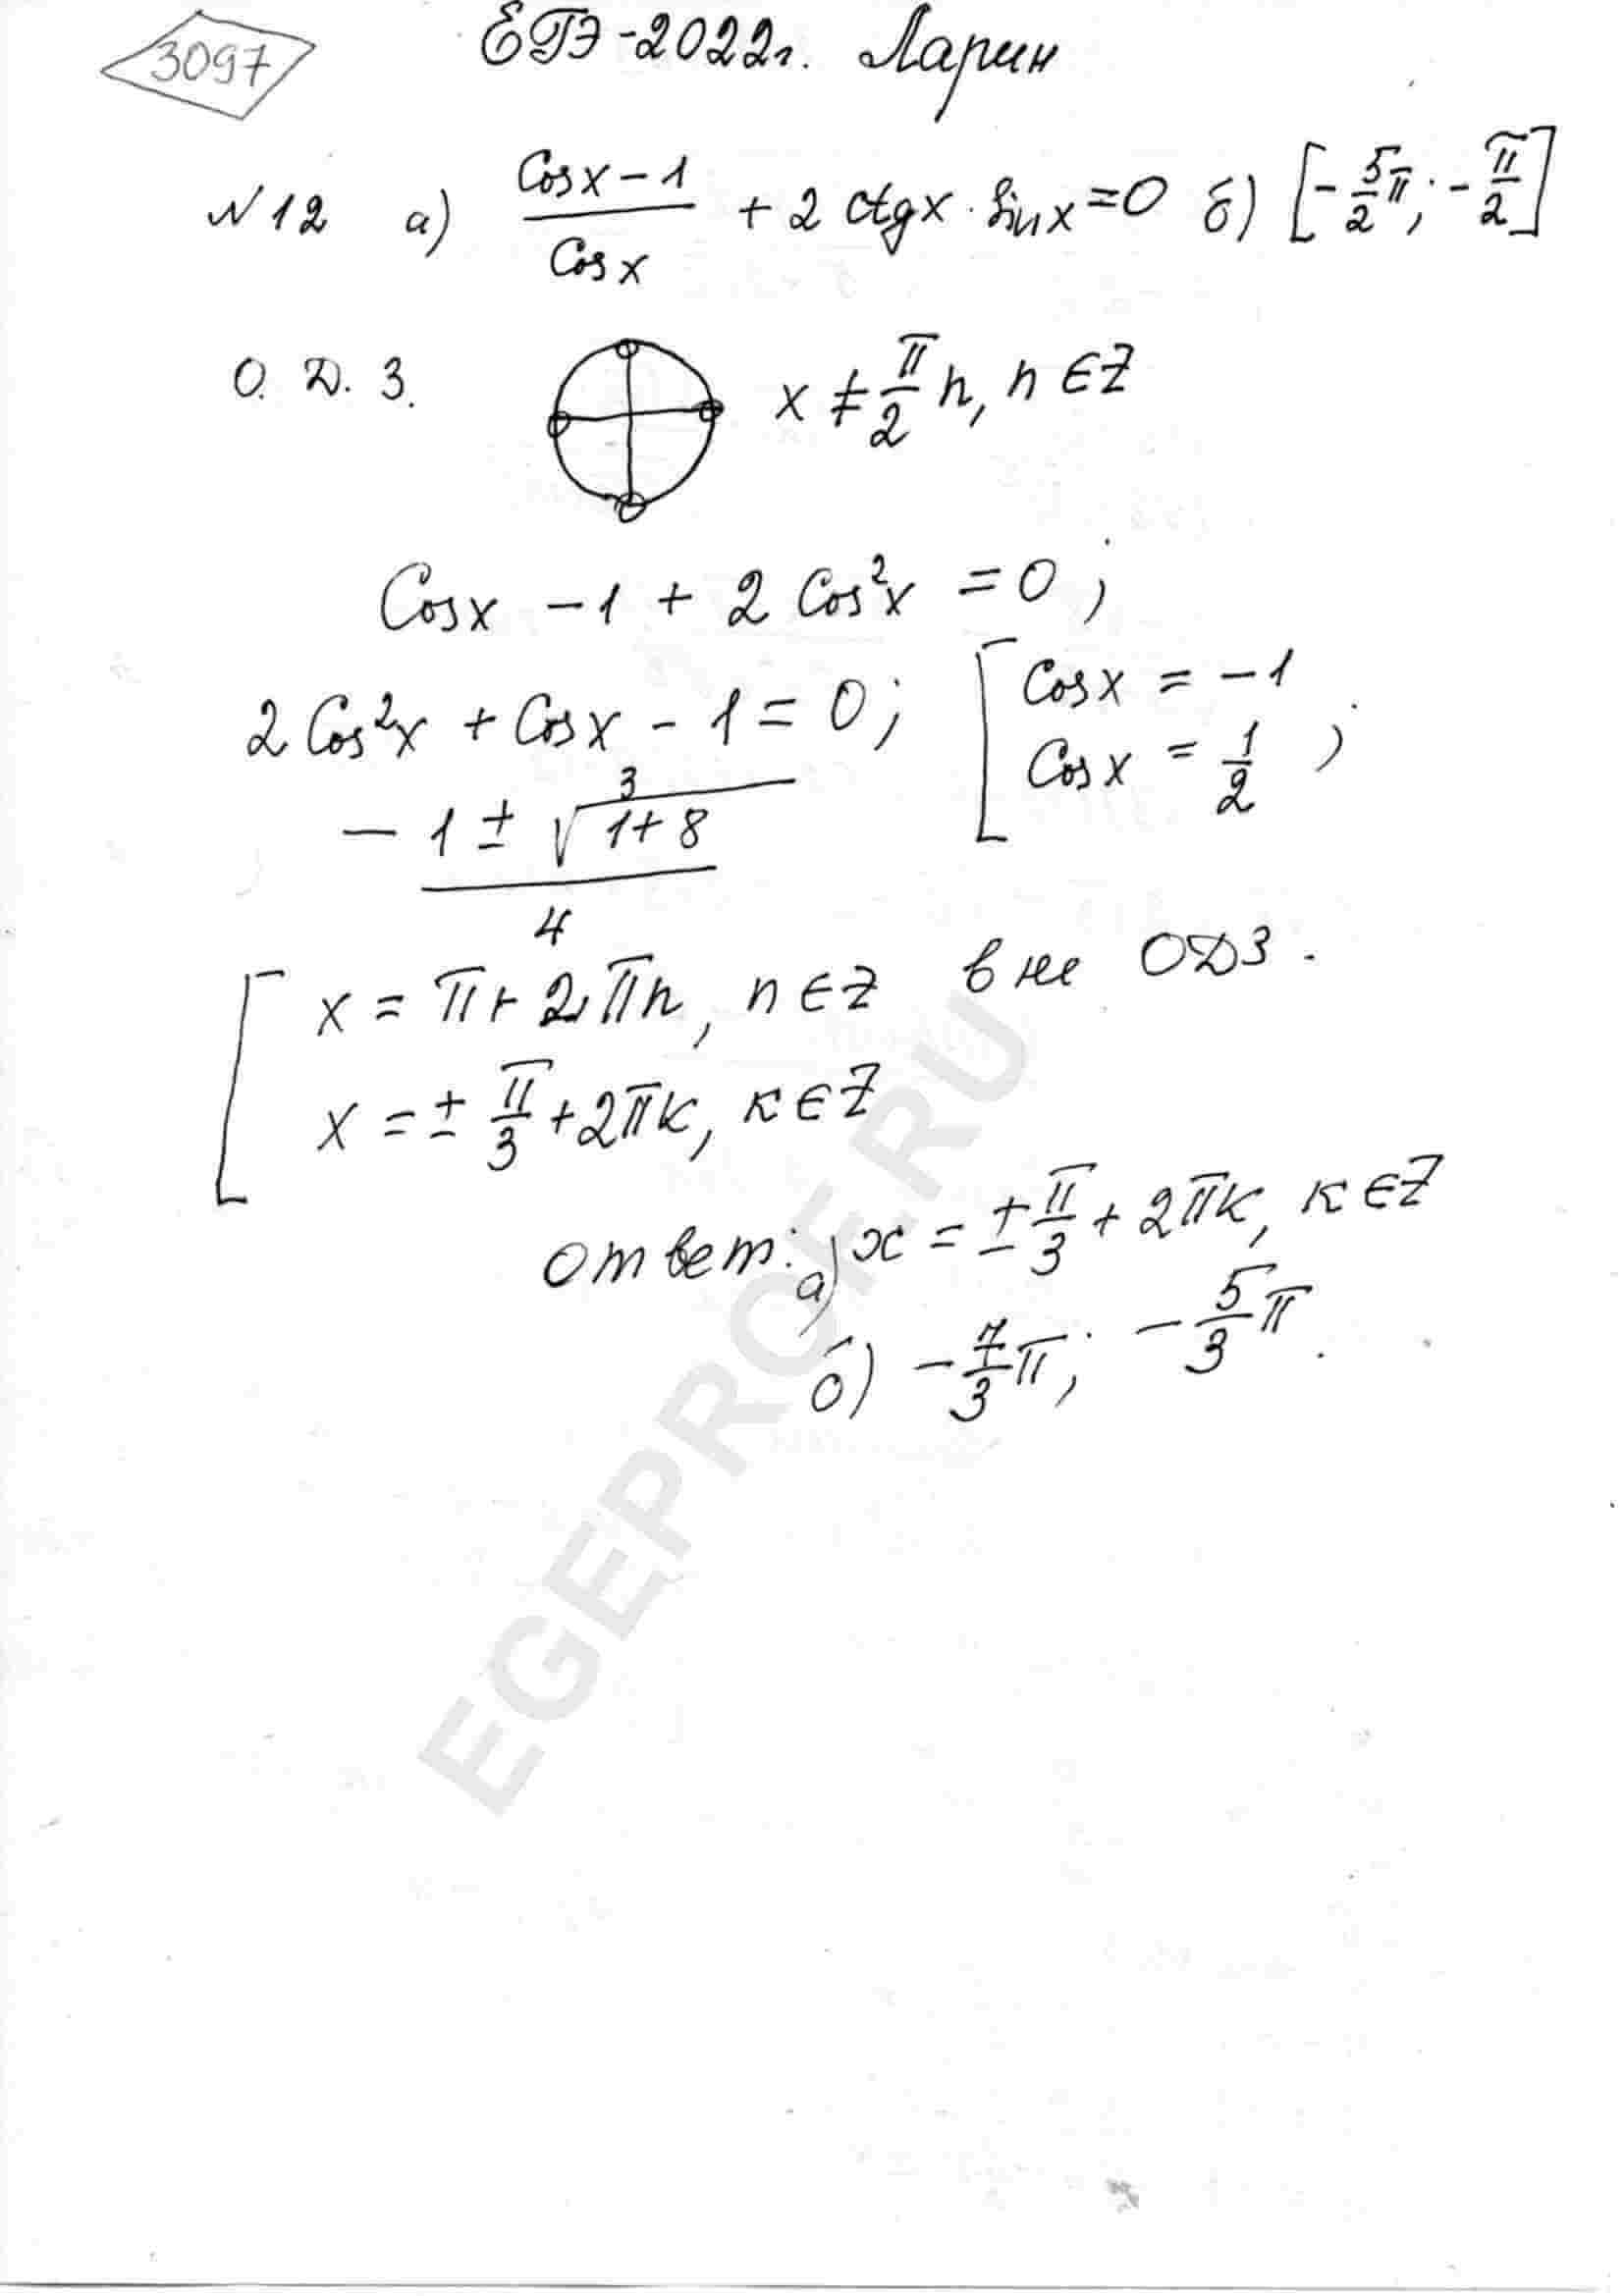 3097
ЕГЭ-2022г. Ларин
№12 а) (Cosx-1)/(Cosx) + 2 ctgx·sinx=0 б) [-5/2π; -π/2]
О.Д.З. x ≠ π/2 n, n∈Z
Cosx -1 + 2Cos²x = 0;
2Cos²x + Cosx - 1 = 0; [ Cosx = -1
Cosx = 1/2 ;
3
(-1 ± √(1+8))/4
[ x = π + 2πn, n∈Z вне ОДЗ.
x = ± π/3 + 2πк, к∈Z
ответ: а) x = ± π/3 + 2πк, к∈Z
б) -7/3π; -5/3π.
EGEPROF.RU